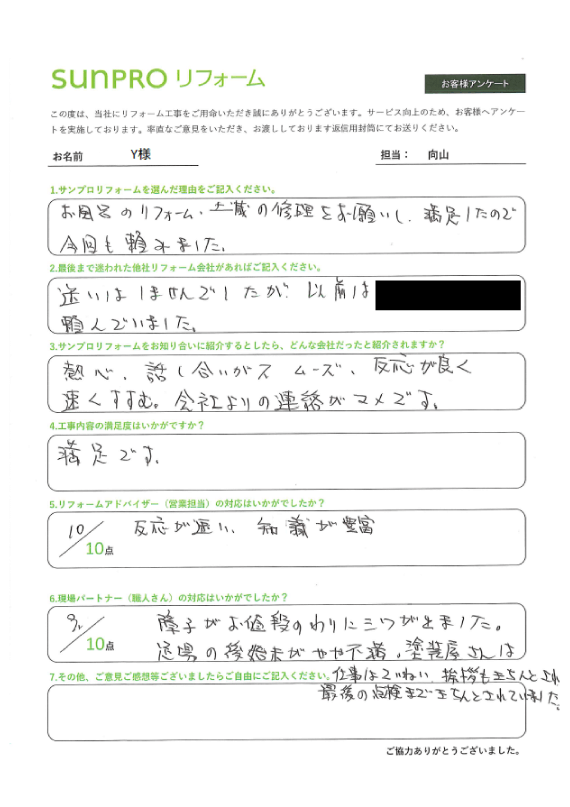 sunPRO リフォーム
お客様アンケート
この度は、当社にリフォーム工事をご用命いただき誠にありがとうございます。サービス向上のため、お客様へアンケー
トを実施しております。率直なご意見をいただき、お渡ししております返信用封筒にてお送りください。
お名前 Y様 担当： 向山
1.サンプロリフォームを選んだ理由をご記入ください。
お風呂のリフォーム、土蔵の修理をお願いし、満足したので
今回も頼みました。
2.最後まで迷われた他社リフォーム会社があればご記入ください。
迷いはしませんでしたが、以前は
頼んでいました。
3.サンプロリフォームをお知り合いに紹介するとしたら、どんな会社だったと紹介されますか？
熱心、話し合いがスムーズ、反応が良く
速くすすむ。会社よりの連絡がマメです。
4.工事内容の満足度はいかがですか？
満足です。
5.リフォームアドバイザー（営業担当）の対応はいかがでしたか？
10/10点 反応が速い、知識が豊富
6.現場パートナー（職人さん）の対応はいかがでしたか？
9/10点 障子がお値段のわりにシワが出ました。
足場の後始末がやや不満。塗装屋さんは
7.その他、ご意見ご感想等ございましたらご自由にご記入ください。
仕事はていねい、挨拶もきちんとされ
最後の点検まできちんとされていました。
ご協力ありがとうございました。